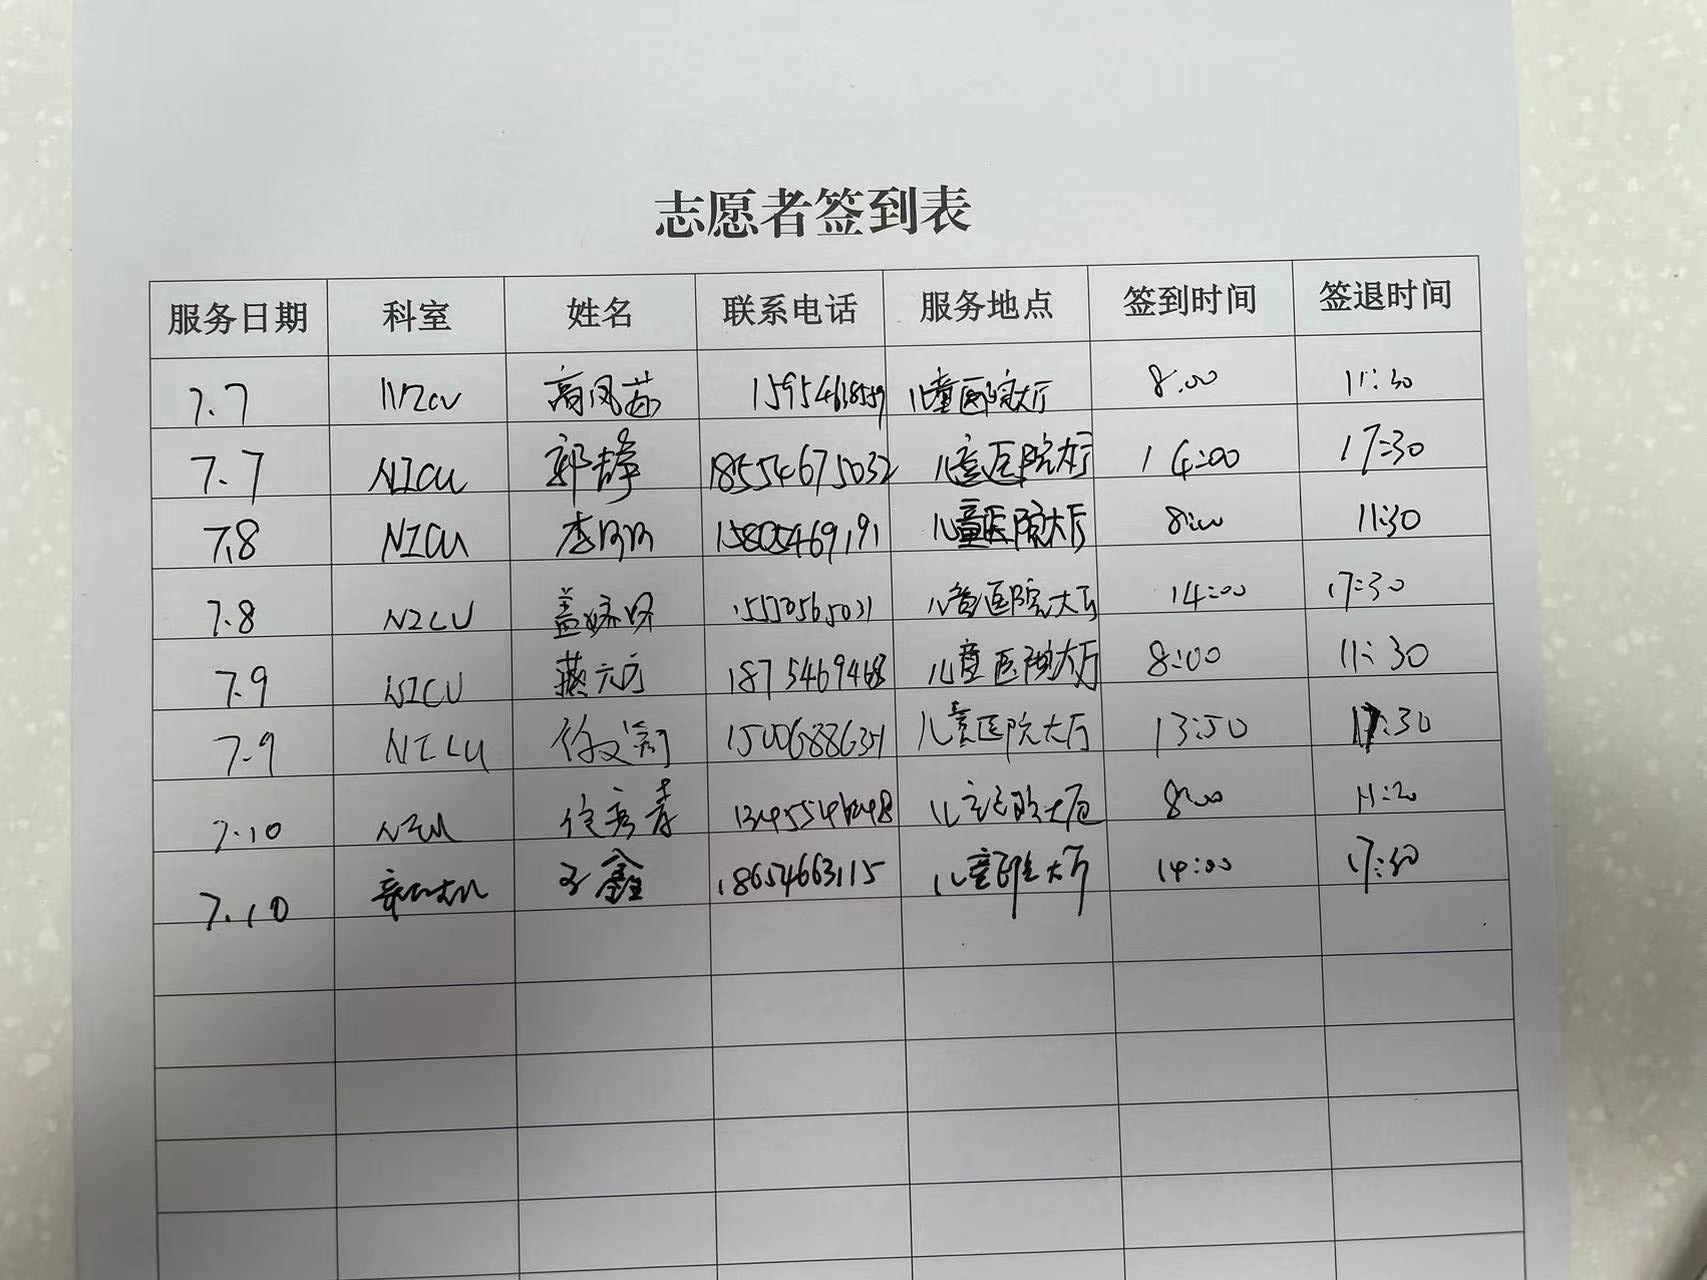 志愿者签到表
服务日期 科室 姓名 联系电话 服务地点 签到时间 签退时间
7.7 NICU 高凤茹 儿童医院大厅 8:00 11:30
7.7 NICU 郭静 18554675032 儿童医院大厅 14:00 17:30
7.8 NICU 李 15805469191 儿童医院大厅 8:00 11:30
7.8 NICU 盖 儿童医院大厅 14:00 17:30
7.9 NICU 燕 儿童医院大厅 8:00 11:30
7.9 NICU 徐文 儿童医院大厅 13:50 17:30
7.10 NICU 儿童医院大厅 8:00
7.10 鑫 18654663115 儿童医院大厅 14:00 17:30